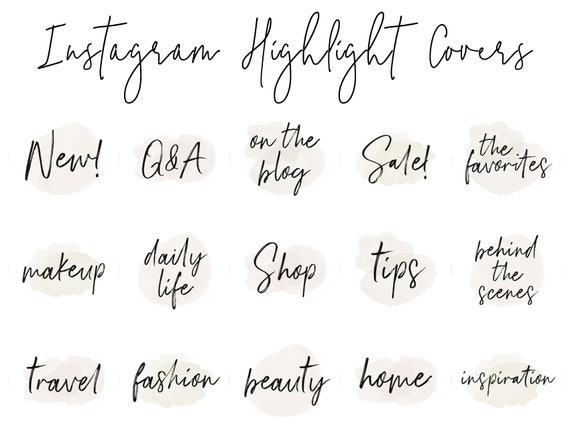 Instagram Highlight Covers
New!
Q&A
on the
blog
Sale!
the
favorites
makeup
daily
life
Shop
tips
behind
the
scenes
travel
fashion
beauty
home
inspiration